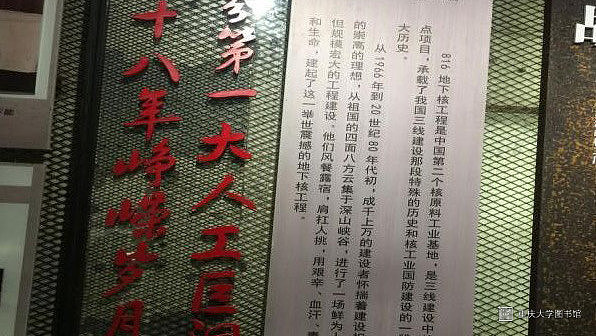 816 地下核工程是中国第二个核原料工业基地，是三线建设中
点项目，承载了我国三线建设那段特殊的历史和核工业国防建设的一
大历史。
从1966年到20世纪80年代初，成千上万的建设者怀揣着建设祖
的崇高的理想，从祖国的四面八方云集于深山峡谷，进行了一场鲜为
但规模宏大的工程建设。他们风餐露宿，肩扛人挑，用艰辛、血汗、青
和生命，建起了这一举世震撼的地下核工程。
第一大人工巨
十八年峥嵘岁月
重庆大学图书馆